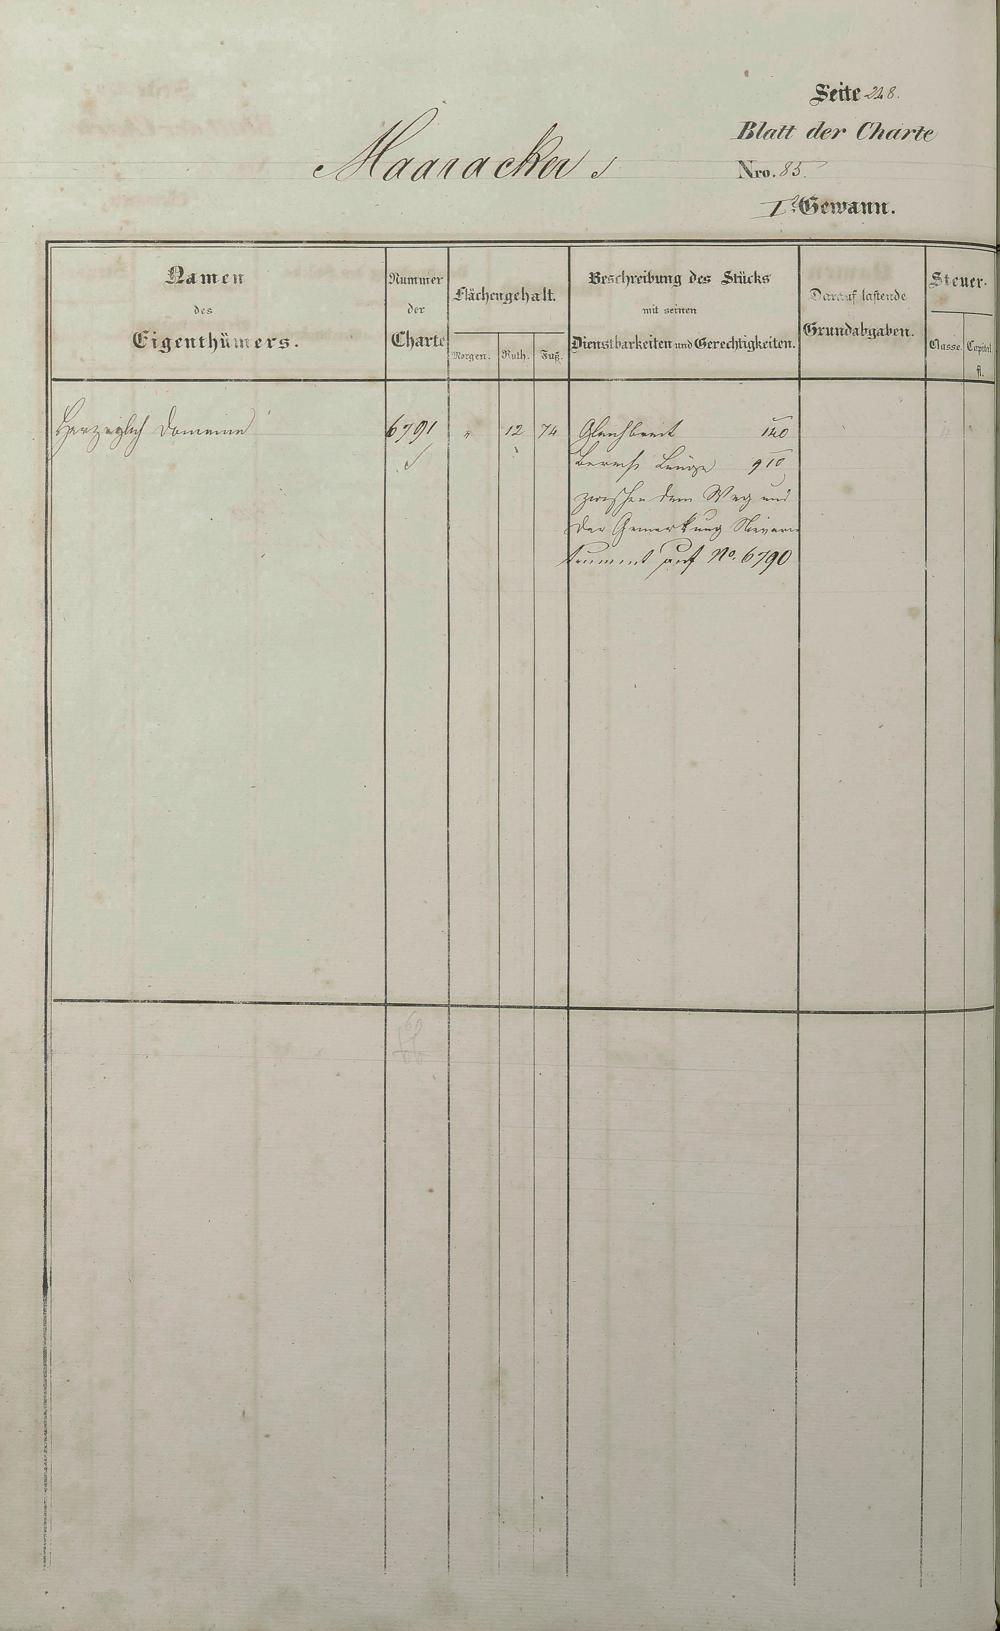 Seite 248.
Blatt der Charte
Maaracker
Nro. 85.
I. Gewann.
Namen
des
Eigenthümers.
Nummer
der
Charte
Flächengehalt.
Morgen. Ruth. Fuß.
Beschreibung des Stücks
mit seinen
Dienstbarkeiten und Gerechtigkeiten.
Darauf lastende
Grundabgaben.
Steuer-
Classe. Capital.
fl.
Herzoglich Domaine 6791 " 12 74 Gleichbreit 140
berech Länge 910
zwischen dem Weg und
der Gemarkung Nievern
kummt auf No. 6790